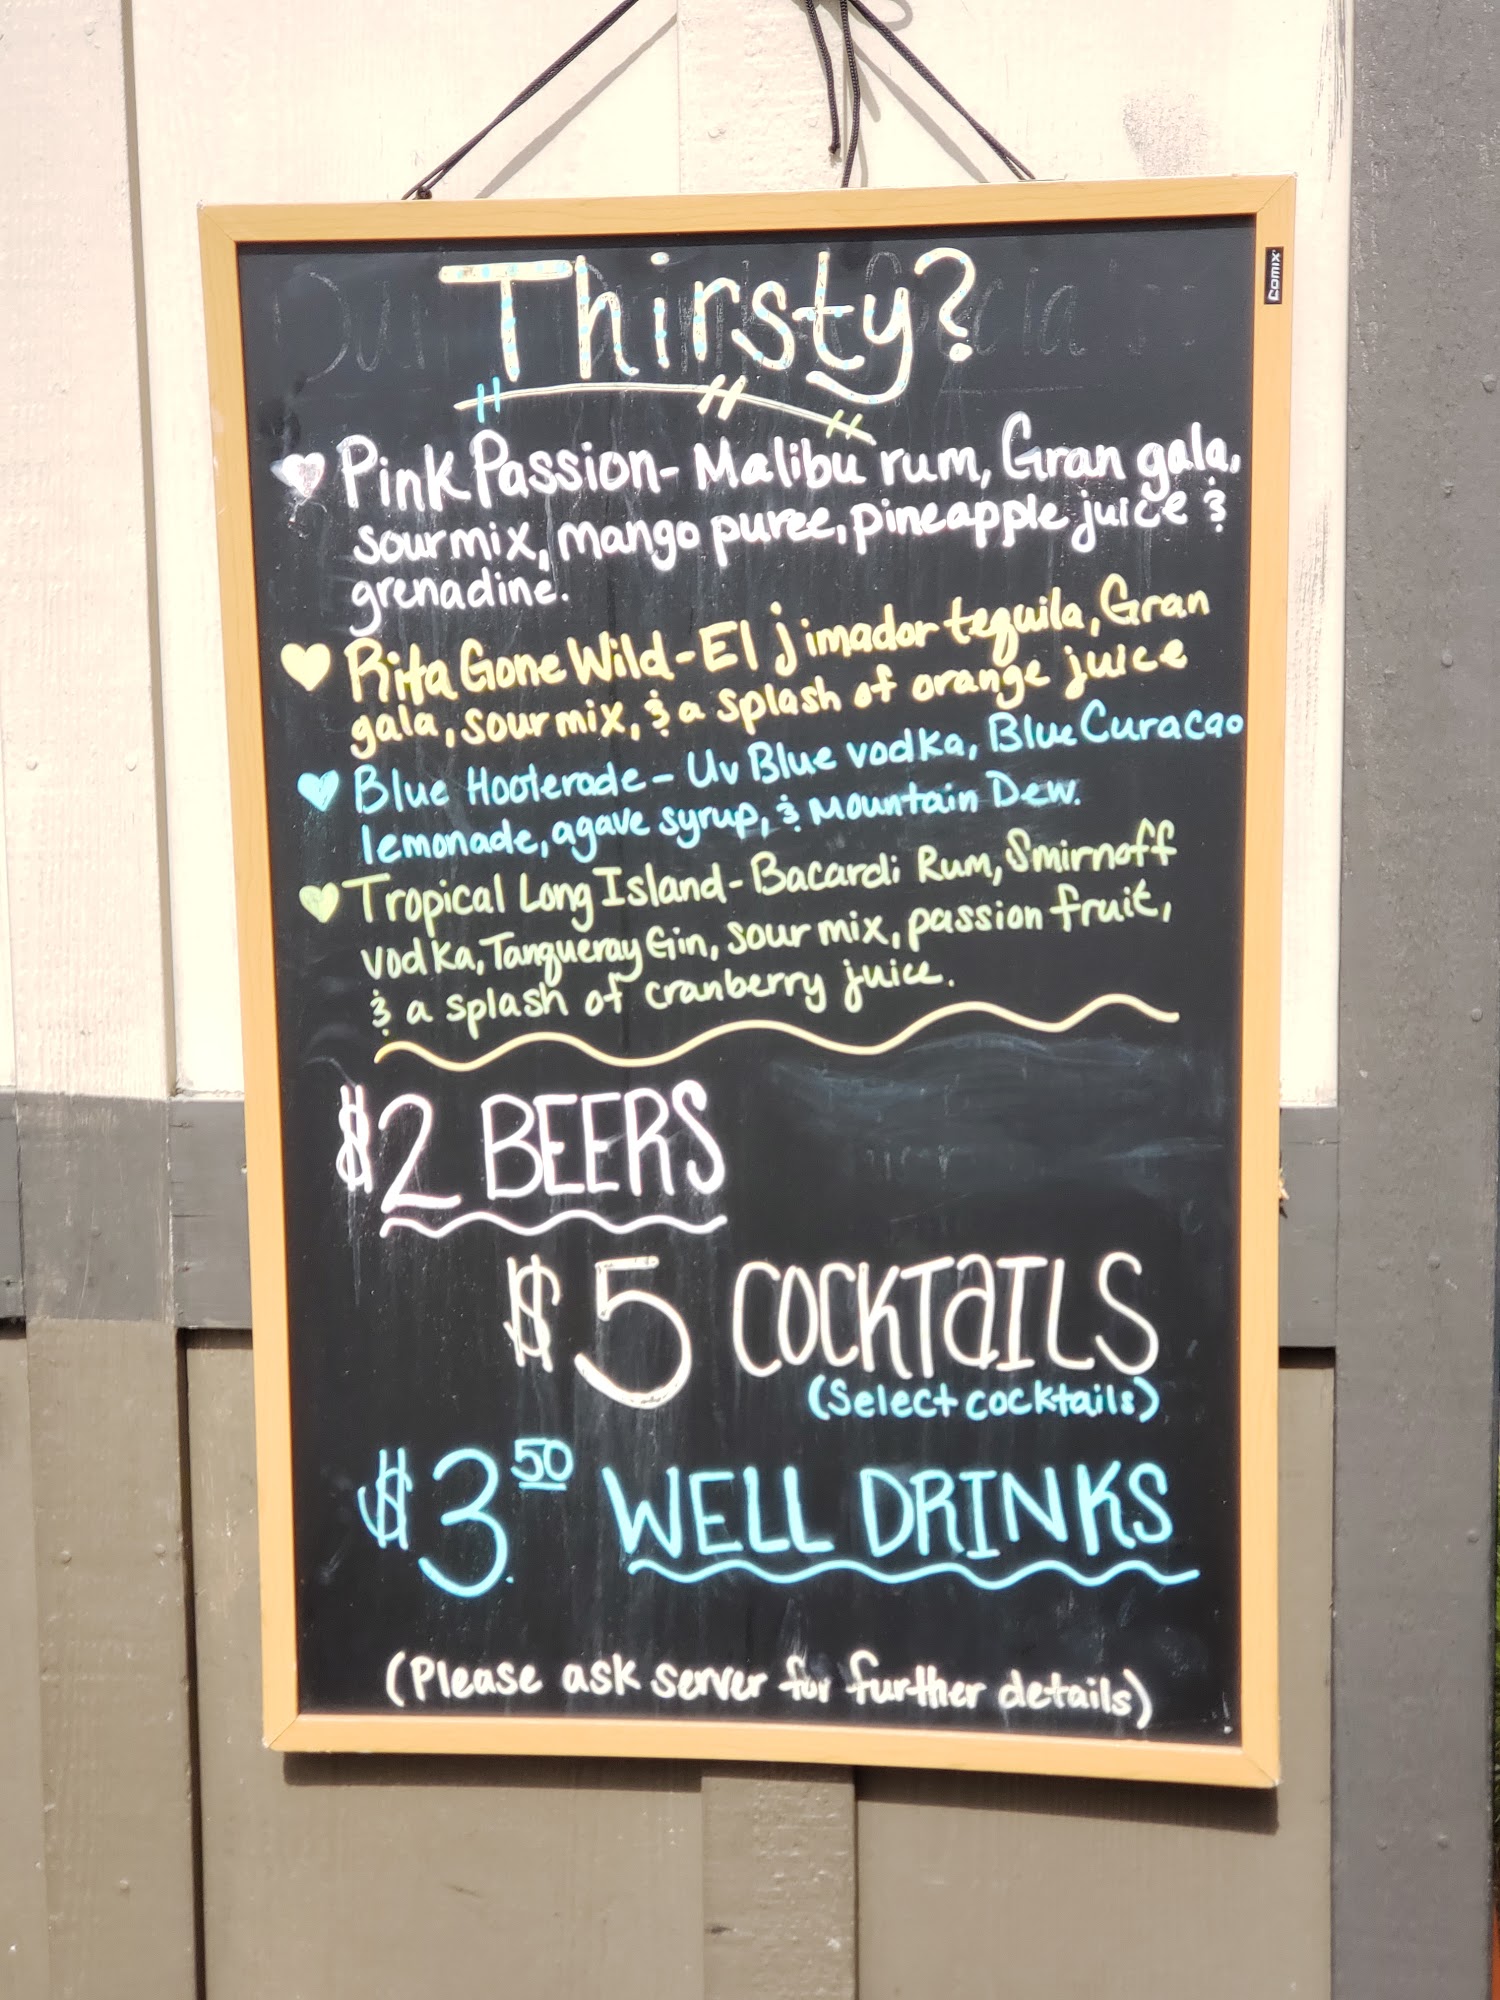 Thirsty?
comix
Pink Passion- Malibu rum, Gran gala,
sour mix, mango puree, pineapple juice &
grenadine.
Rita Gone Wild-El jimador tequila, Gran
gala, sour mix, & a splash of orange juice
Blue Hooterade- Uv Blue vodka, Blue Curacao
lemonade, agave syrup, & Mountain Dew.
Tropical Long Island- Bacardi Rum, Smirnoff
vodka, Tanqueray Gin, sour mix, passion fruit,
& a splash of cranberry juice.
$2 BEERS
$5 COCKTaILS
(Select cocktails)
$3.50 WELL DRINKS
(Please ask server for further details)